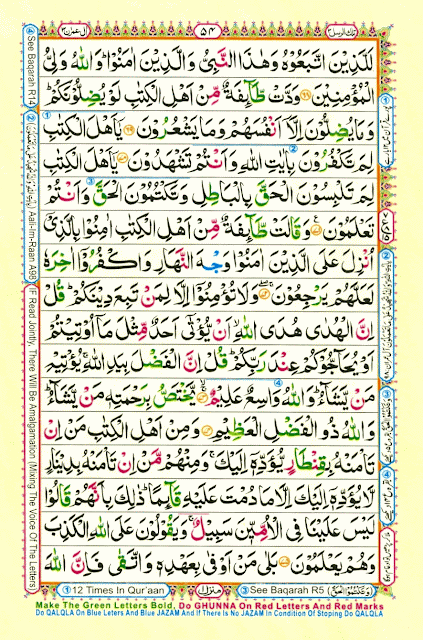 تلك الرسل ٣
٥٤
اٰل عمرٰن ٣
لَلَّذِيْنَ اتَّبَعُوْهُ وَهٰذَا النَّبِىُّ وَالَّذِيْنَ اٰمَنُوْا ؕ وَاللّٰهُ وَلِىُّ
الْمُؤْمِنِيْنَ ﴿۶۸﴾ وَدَّتْ طَّآٮِٕفَةٌ مِّنْ اَهْلِ الْكِتٰبِ لَوْ يُضِلُّوْنَكُمْ ؕ
وَمَا يُضِلُّوْنَ اِلَّاۤ اَنْفُسَهُمْ وَمَا يَشْعُرُوْنَ ﴿۶۹﴾ يٰۤاَهْلَ الْكِتٰبِ
لِمَ تَكْفُرُوْنَ بِاٰيٰتِ اللّٰهِ وَاَنْتُمْ تَشْهَدُوْنَ ﴿۷۰﴾ يٰۤاَهْلَ الْكِتٰبِ
لِمَ تَلْبِسُوْنَ الْحَقَّ بِالْبَاطِلِ وَتَكْتُمُوْنَ الْحَقَّ وَاَنْتُمْ
تَعْلَمُوْنَ ﴿۷۱﴾ وَقَالَتْ طَّآٮِٕفَةٌ مِّنْ اَهْلِ الْكِتٰبِ اٰمِنُوْا بِالَّذِىْۤ
اُنْزِلَ عَلَى الَّذِيْنَ اٰمَنُوْا وَجْهَ النَّهَارِ وَاكْفُرُوْۤا اٰخِرَهٗ
لَعَلَّهُمْ يَرْجِعُوْنَ ﴿۷۲﴾ وَلَا تُؤْمِنُوْۤا اِلَّا لِمَنْ تَبِعَ دِيْنَكُمْ ؕ قُلْ
اِنَّ الْهُدٰى هُدَى اللّٰهِ ۙ اَنْ يُّؤْتٰٓى اَحَدٌ مِّثْلَ مَاۤ اُوْتِيْتُمْ
اَوْ يُحَآجُّوْكُمْ عِنْدَ رَبِّكُمْ ؕ قُلْ اِنَّ الْفَضْلَ بِيَدِ اللّٰهِ ۚ يُؤْتِيْهِ
مَنْ يَّشَآءُ ؕ وَاللّٰهُ وَاسِعٌ عَلِيْمٌ ﴿۷۳﴾ يَّخْتَصُّ بِرَحْمَتِهٖ مَنْ يَّشَآءُ ؕ
وَاللّٰهُ ذُو الْفَضْلِ الْعَظِيْمِ ﴿۷۴﴾ وَمِنْ اَهْلِ الْكِتٰبِ مَنْ اِنْ
تَاْمَنْهُ بِقِنْطَارٍ يُّؤَدِّهٖۤ اِلَيْكَ ۚ وَمِنْهُمْ مَّنْ اِنْ تَاْمَنْهُ بِدِيْنَارٍ
لَّا يُؤَدِّهٖۤ اِلَيْكَ اِلَّا مَا دُمْتَ عَلَيْهِ قَآٮِٕمًا ؕ ذٰلِكَ بِاَنَّهُمْ قَالُوْا
لَيْسَ عَلَيْنَا فِى الْاُمِّيّٖنَ سَبِيْلٌ ۚ وَيَقُوْلُوْنَ عَلَى اللّٰهِ الْكَذِبَ
وَهُمْ يَعْلَمُوْنَ ﴿۷۵﴾ بَلٰى مَنْ اَوْفٰى بِعَهْدِهٖ وَاتَّقٰى فَاِنَّ اللّٰهَ
④ See Baqarah R14
② Aali-Im-Raan A98 (IF Read Jointly, There Will Be Amalgamation (Mixing The Voice Of The Letters)
① 12 Times In Qur'aan
منزل ١
③ See Baqarah R5
Make The Green Letters Bold, Do GHUNNA On Red Letters And Red Marks
Do QALQLA On Blue Leters And Blue JAZAM And If There Is No JAZAM In Condition Of Stoping Do QALQLA